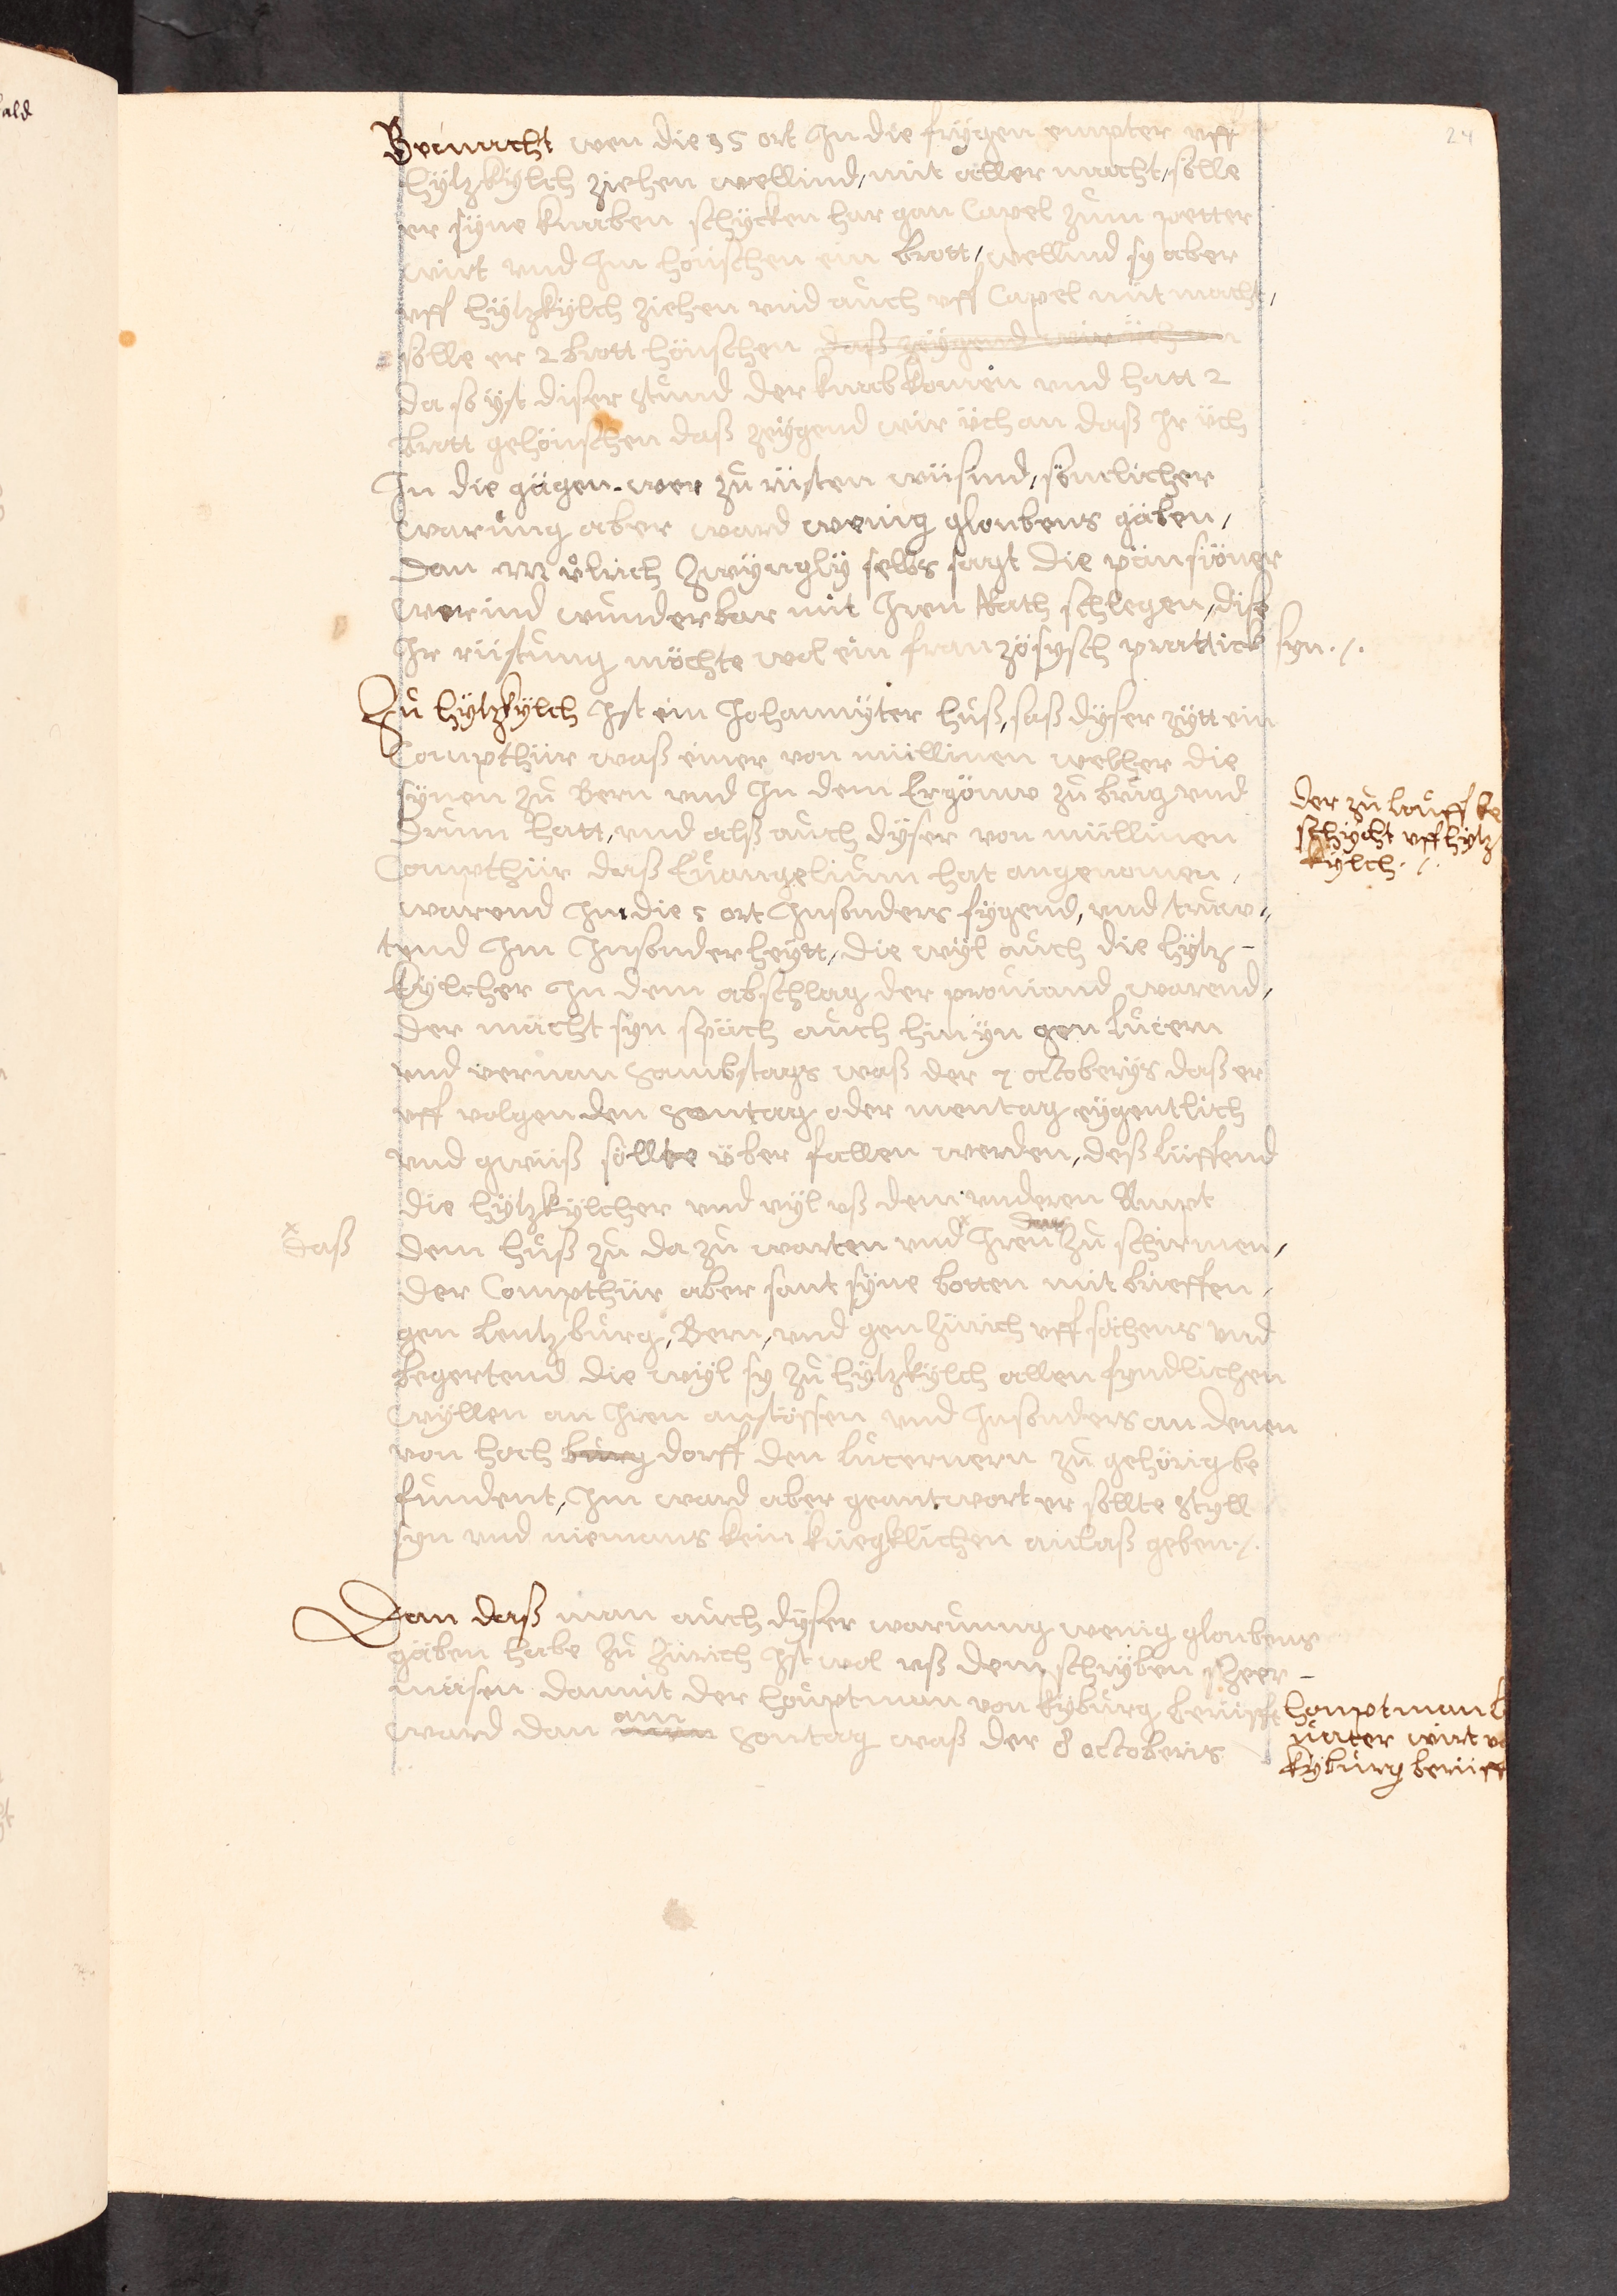 24
Vermacht wen die 5 ort Jn die frÿgen empter uff
hÿltzkÿlch ziehen wellind, mit aller macht, sölle
er sÿne knaben schÿcken har gan Capel zum petter
wirt und Jm höüschen ein brott, wellind sy aber
uff hÿltzkÿlch ziehen und auch uff Capel mit macht,
sölle er 2 brott höüschen daß zeÿgend wir üch an
da so ÿst diser stund der knab komen und hatt 2
brott gehöüschen daß zeÿgend wir üch an daß Jr üch
Jn die gägen wer zu rüsten wüsind, sömlicher
warung aber ward wenig gloubens gäben,
dan M ůlrich Zwÿnglÿ selbs sagt die pänsiöner
werind wunderbar mit Jren Rath schlegen, dise
Jr rüstung möchte wol ein französysch prattick syn ./.
Zu hÿltzkÿlch Jst ein Johannÿter huß, saß dÿser zÿtt ein
Compthür waß einer von müllinen welher die
sÿnen zu Bern und Jn dem Ergöuw zu brug und
drum hatt, und alß auch dÿser von müllinen
Compthür daß Euangelium hat angenomen,
warend Jm die 5 ort Jnsonders fÿgend, und truw-
tend Jm Jnsonderheÿtt, die wÿl auch die hÿltz-
kÿlcher Jn dem abschlag der proviand warend,
der macht syn späch auch hin ÿn gen lucern
und vernan sambstags waß der 7 octoberÿs daß er
uff volgenden sontag oder mentag eÿgentlich
und gwüß söllte über fallen werden, deß lüffend
die hÿltzkÿlcher und vÿl uß dem underen Ampt
x daß
dem huß zu da zu warten und x Jren zu schirmen,
der Compthür aber sant sÿne botten mit brieffen,
gen lentzburg, Bern, und gen zürich uff söhens und
begertend die wÿl sy zu hÿltzkÿlch allen fyndlichen
wÿllen an Jren anstössen und Jnsonders an denen
von hoch burg dorff den lucernern zu gehörig be
fundent, Jm ward aber geantwort er söllte styll
syn und niemans kein kriegklichen anlaß geben ./.
Dan daß man auch dÿser warnung wenig gloubens
gäben habe zu zürich Jst wol uß dem schrÿben
mäsen damit der houptman von kÿburg berüfft
ward dan am sontag waß der 8 octoberis
der zu louff be
schÿcht uff hÿltz
kÿlch ./.
houptman
kÿburg berüfft